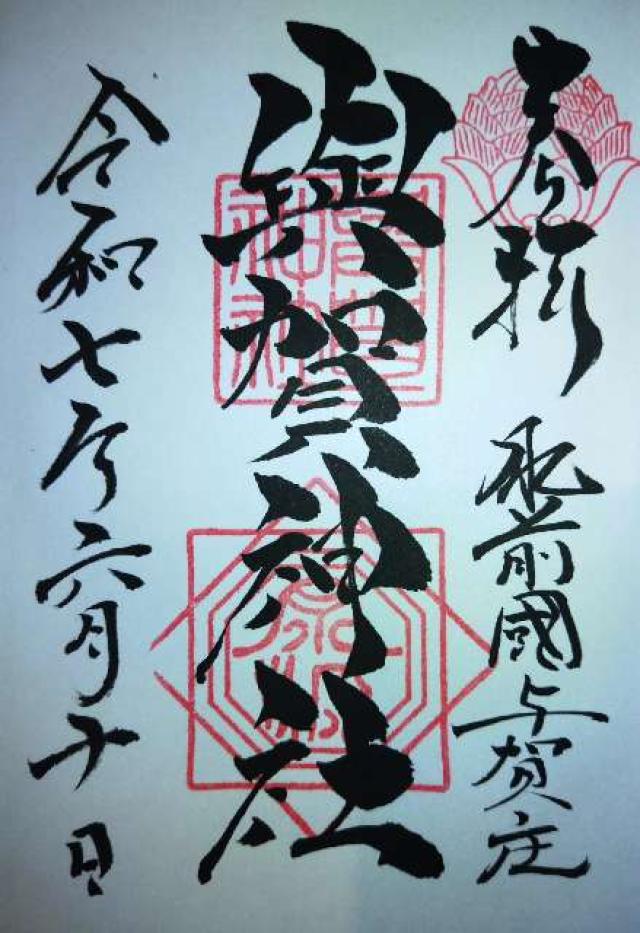 奉拝
肥前國与賀庄
與賀神社
令和七年六月十日